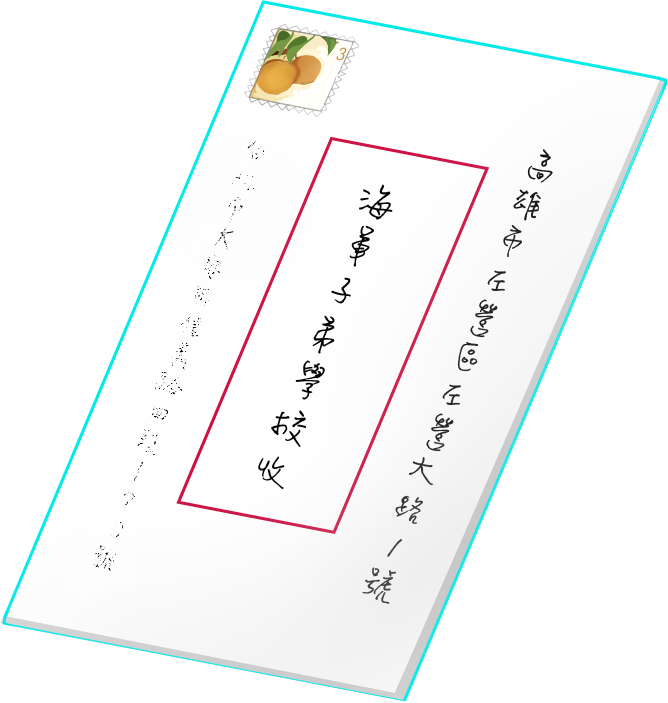 高雄市左營區左營大路1號
海軍子弟學校收
台北市大安區信義路四段
3